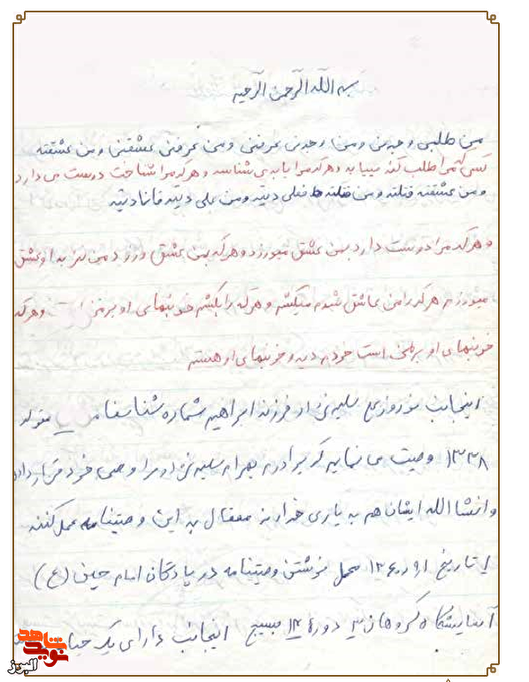 بسم الله الرحمن الرحیم
من طلبنی وجدنی ومن وجدنی عرفنی ومن عرفنی عشقنی ومن عشقنی
کسی که مرا طلب کند مییابد و هر که مرا یابد می شناسد و هر که مرا شناخت دوست می دارد
ومن عشقته قتلته ومن قتلته فعلی دیته ومن علی دیته فانا دیته
و هر که مرا دوست دارد بمن عشق میورزد و هر که بمن عشق ورزد من نیز به او عشق
میورزم هر که را من عاشق شوم میکشم و هر که را بکشم خونبهای او بر من است و هر که
خونبهای او بر من است خودم دیه و خونبهای او هستم
اینجانب نوروزعلی فرزند ابراهیم شماره شناسنامه متولد
۱۳۳۸ وصیت می نمایم که برادرم بهرام را وصی خود قرار دادم
وانشا الله ایشان هم به یاری خداوند به این وصیتنامه عمل کنند
تاریخ محل نوشتن وصیتنامه در پادگان امام حسین (ع)
دوره بسیج اینجانب دارای یک
شاهد
نوید
البرز